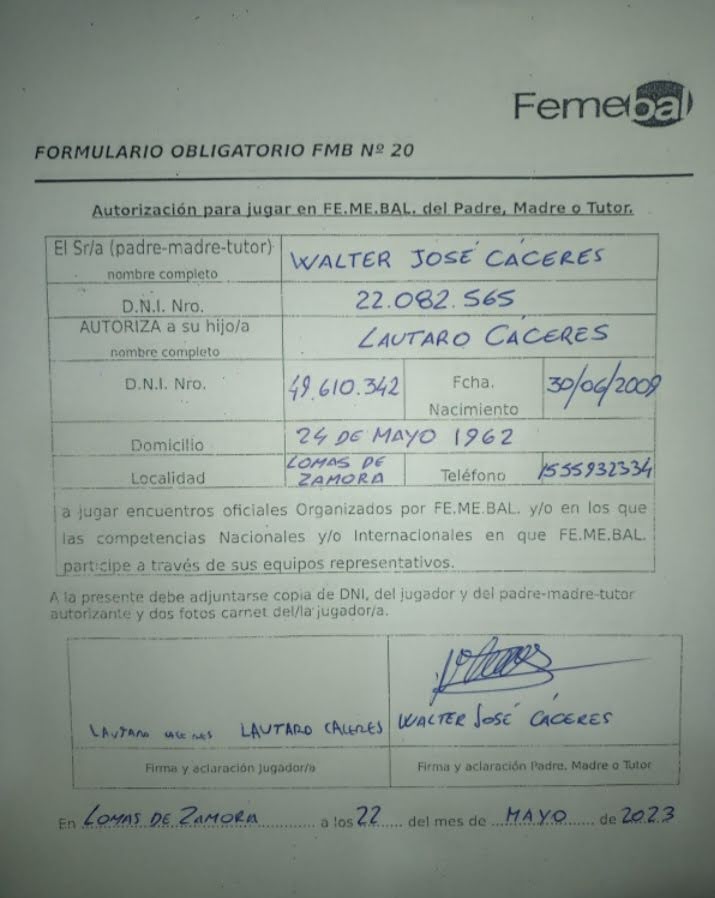 Femebal
FORMULARIO OBLIGATORIO FMB Nº 20
Autorización para jugar en FE.ME.BAL. del Padre, Madre o Tutor.
El Sr/a (padre-madre-tutor) WALTER JOSÉ CÁCERES
nombre completo
D.N.I. Nro. 22.082.565
AUTORIZA a su hijo/a LAUTARO CÁCERES
nombre completo
D.N.I. Nro. 49.610.342 Fcha. 30/06/2009
Nacimiento
Domicilio 24 DE MAYO 1962
Localidad LOMAS DE ZAMORA Teléfono 1555932334
a jugar encuentros oficiales Organizados por FE.ME.BAL. y/o en los que
las competencias Nacionales y/o Internacionales en que FE.ME.BAL.
participe a través de sus equipos representativos.
A la presente debe adjuntarse copia de DNI, del jugador y del padre-madre-tutor
autorizante y dos fotos carnet del/la jugador/a.
LAUTARO CACERES LAUTARO CACERES WALTER JOSÉ CÁCERES
Firma y aclaración Jugador/a Firma y aclaración Padre, Madre o Tutor
En LOMAS DE ZAMORA a los 22 del mes de MAYO de 2023